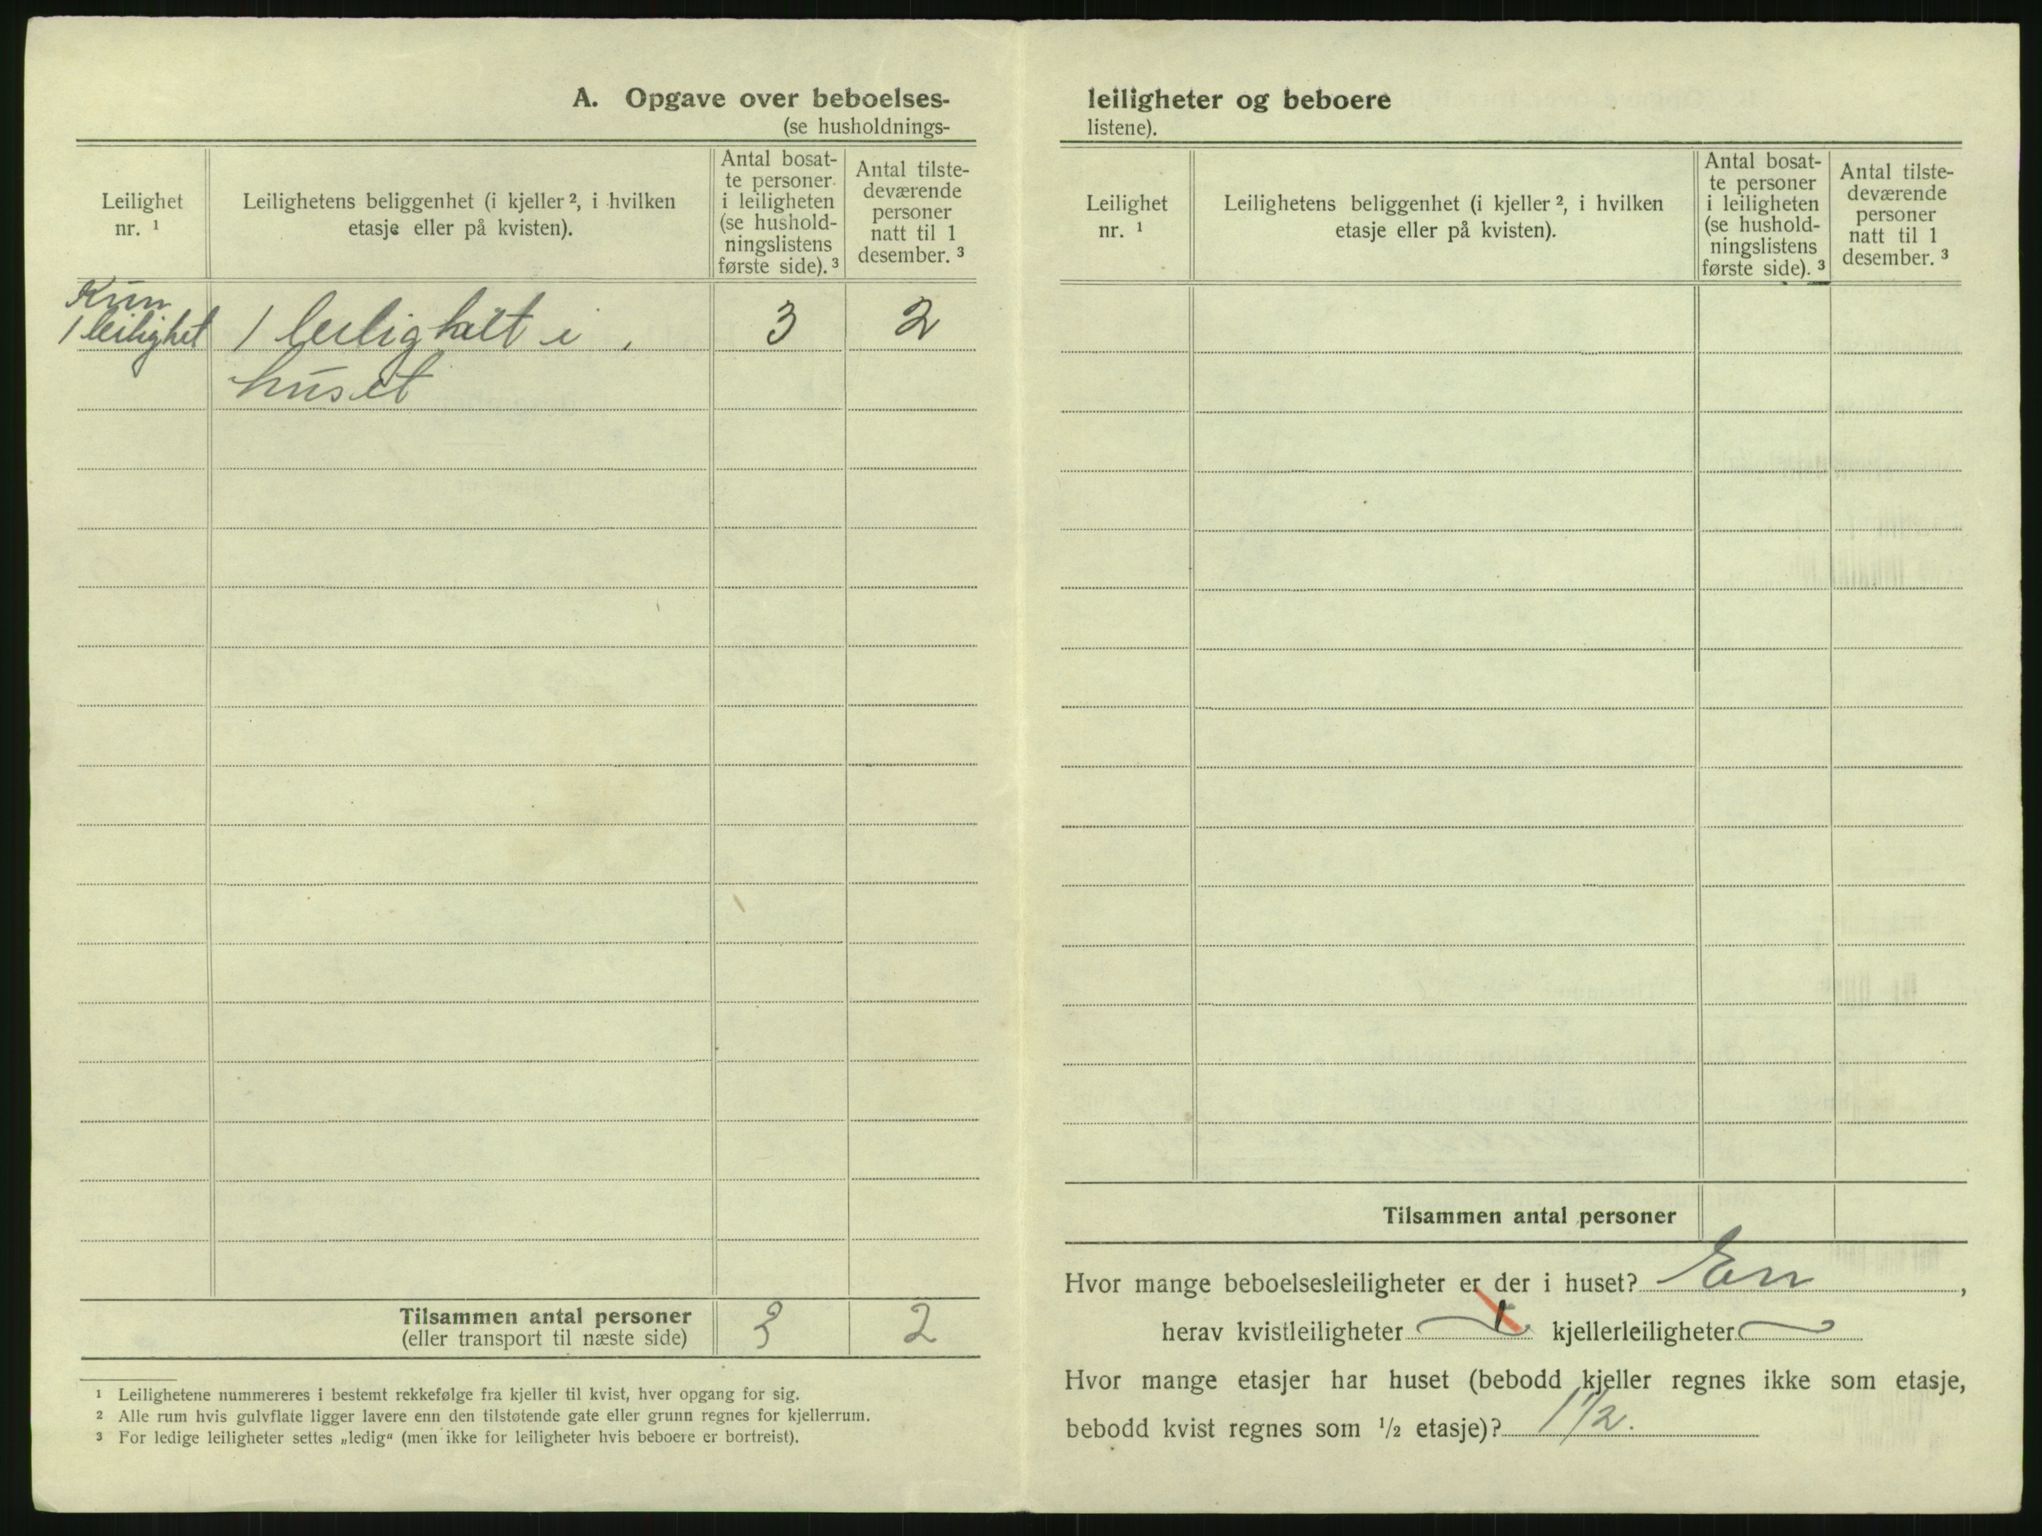 A. Opgave over beboelses-
(se husholdnings-
Leilighet
nr. ¹
Leilighetens beliggenhet (i kjeller ², i hvilken
etasje eller på kvisten).
Antal bosat-
te personer
i leiligheten
(se hushold-
ningslistens
første side). ³
Antal tilste-
deværende
personer
natt til 1
desember. ³
Kun
1 leilighet
1 leilighet i
huset
3
2
Tilsammen antal personer
(eller transport til næste side)
3
2
¹ Leilighetene nummereres i bestemt rekkefølge fra kjeller til kvist, hver opgang for sig.
² Alle rum hvis gulvflate ligger lavere enn den tilstøtende gate eller grunn regnes for kjellerrum.
³ For ledige leiligheter settes „ledig“ (men ikke for leiligheter hvis beboere er bortreist).
leiligheter og beboere
listene).
Leilighet
nr. ¹
Leilighetens beliggenhet (i kjeller ², i hvilken
etasje eller på kvisten).
Antal bosat-
te personer
i leiligheten
(se hushold-
ningslistens
første side). ³
Antal tilste-
deværende
personer
natt til 1
desember. ³
Tilsammen antal personer
Hvor mange beboelsesleiligheter er der i huset? En,
herav kvistleiligheter kjellerleiligheter
Hvor mange etasjer har huset (bebodd kjeller regnes ikke som etasje,
bebodd kvist regnes som ½ etasje)? 1 1/2.